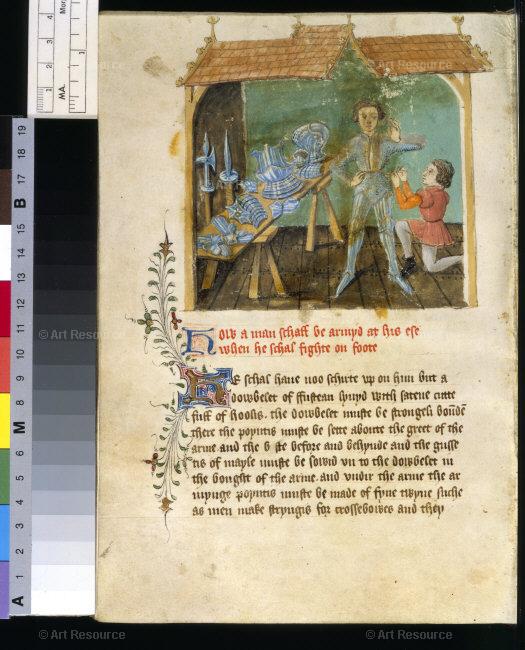 How a man schall be armyd at his ese
when he schal fighte on foote
He schal have noo schirte up on him but a
dowbelet of ffustean lynyd with satene cutte
full of hoolis. the dowbelet muste be strongeli boūdēn
there the poyntis muste be sette aboute the greet of the
arme. and the b ste before and behynde and the gusse
tis of mayle muste be sowid un to the dowbelet in
the bought of the arme. and undir the arme the ar
mynge poyntis muste be made of fyne twyne suche
as men make stryngis for crossebowes and they
MA.
1 2 3 4
A 1 2 3 4 5 6 7 8 9 10 11 12 13 14 15 16 17 18 19
M
B
© Art Resource
© Art Resource
© Art Resource
© Art Resource